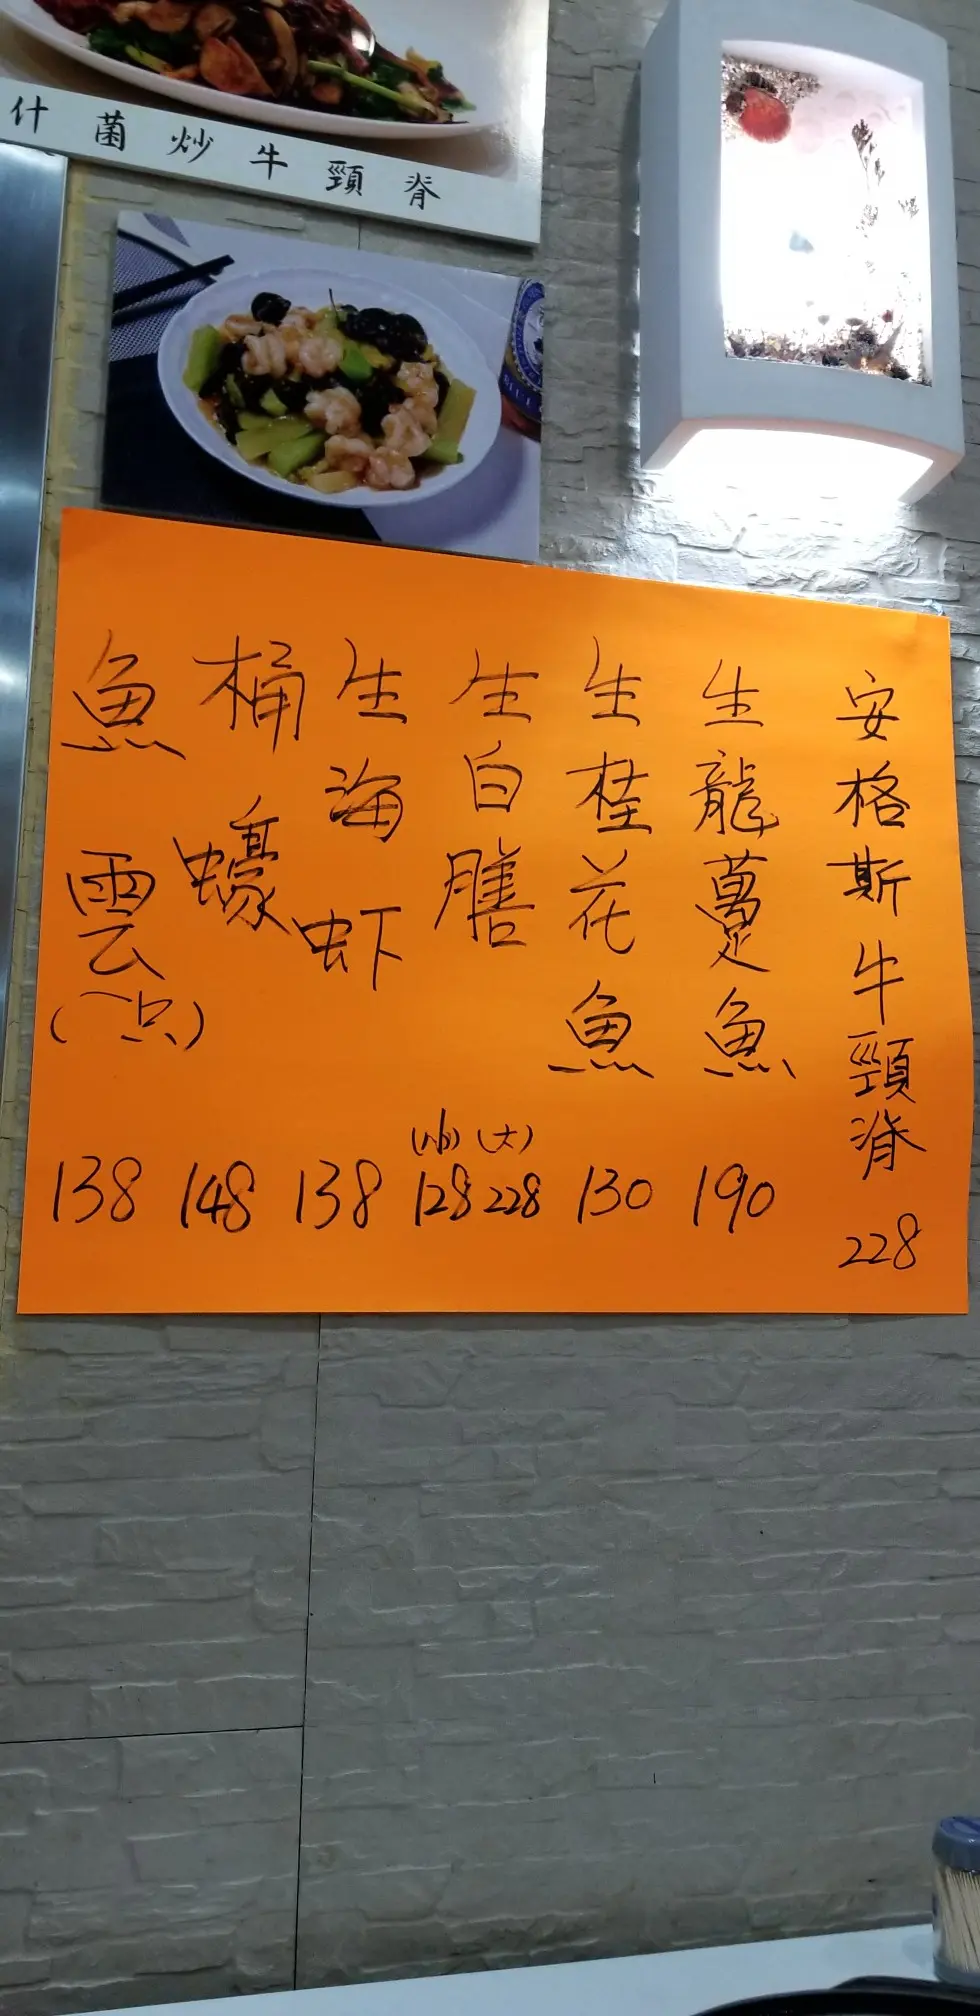 什菌炒牛頸脊
安格斯牛頸脊 228
生龍躉魚 190
生桂花魚 130
生白膳 (細) 128 (大) 228
生海虾 138
桶蠔 148
魚雲(一只) 138